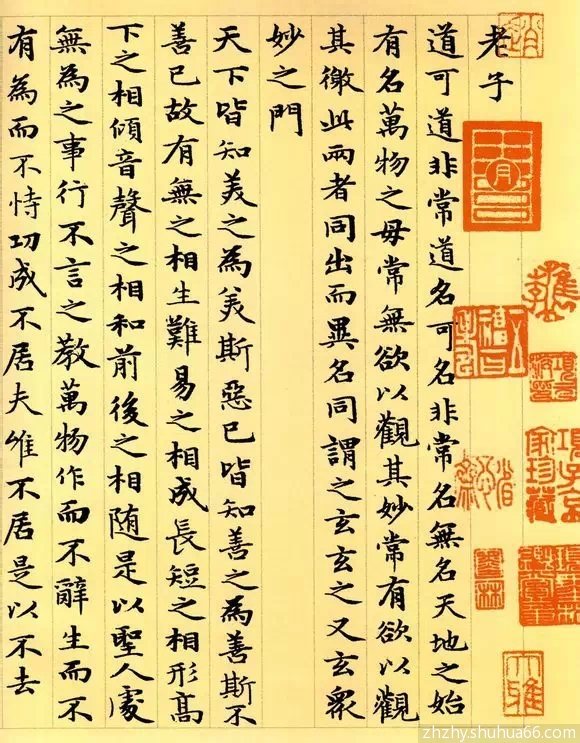 老子
道可道非常道名可名非常名無名天地之始
有名萬物之母常無欲以觀其妙常有欲以觀
其徼此兩者同出而異名同謂之玄玄之又玄眾
妙之門
天下皆知美之為美斯惡已皆知善之為善斯不
善已故有無之相生難易之相成長短之相形高
下之相傾音聲之相和前後之相随是以聖人處
無為之事行不言之教萬物作而不辭生而不
有為而不恃功成不居夫惟不居是以不去
家珍藏
zhzhy.shuhua66.com